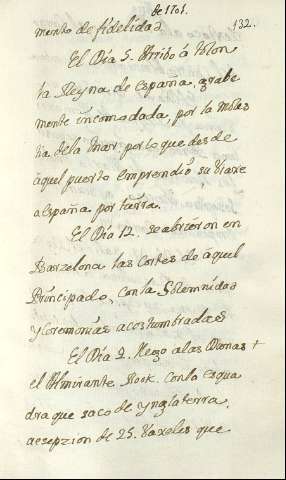 de 1701.
132.
mento de fidelidad
El Dia 5. Arribó á tolon
la Reyna de España, grabe
mente incomodada, por la moles
tia dela Mar, porlo que desde
áquel puerto emprendió su Viaxe
aEspaña por tierra.
El Dia 12. seabrieron en
Barzelona las Cortes de áquel
Principado, conla Solemnidad
y Ceremonias acostumbradas
El Dia 2. llego alas Dunas +
el Almirante Rook. Conla Esqua
dra que saco de ynglaterra,
aesepzion de 25. Vaxeles que